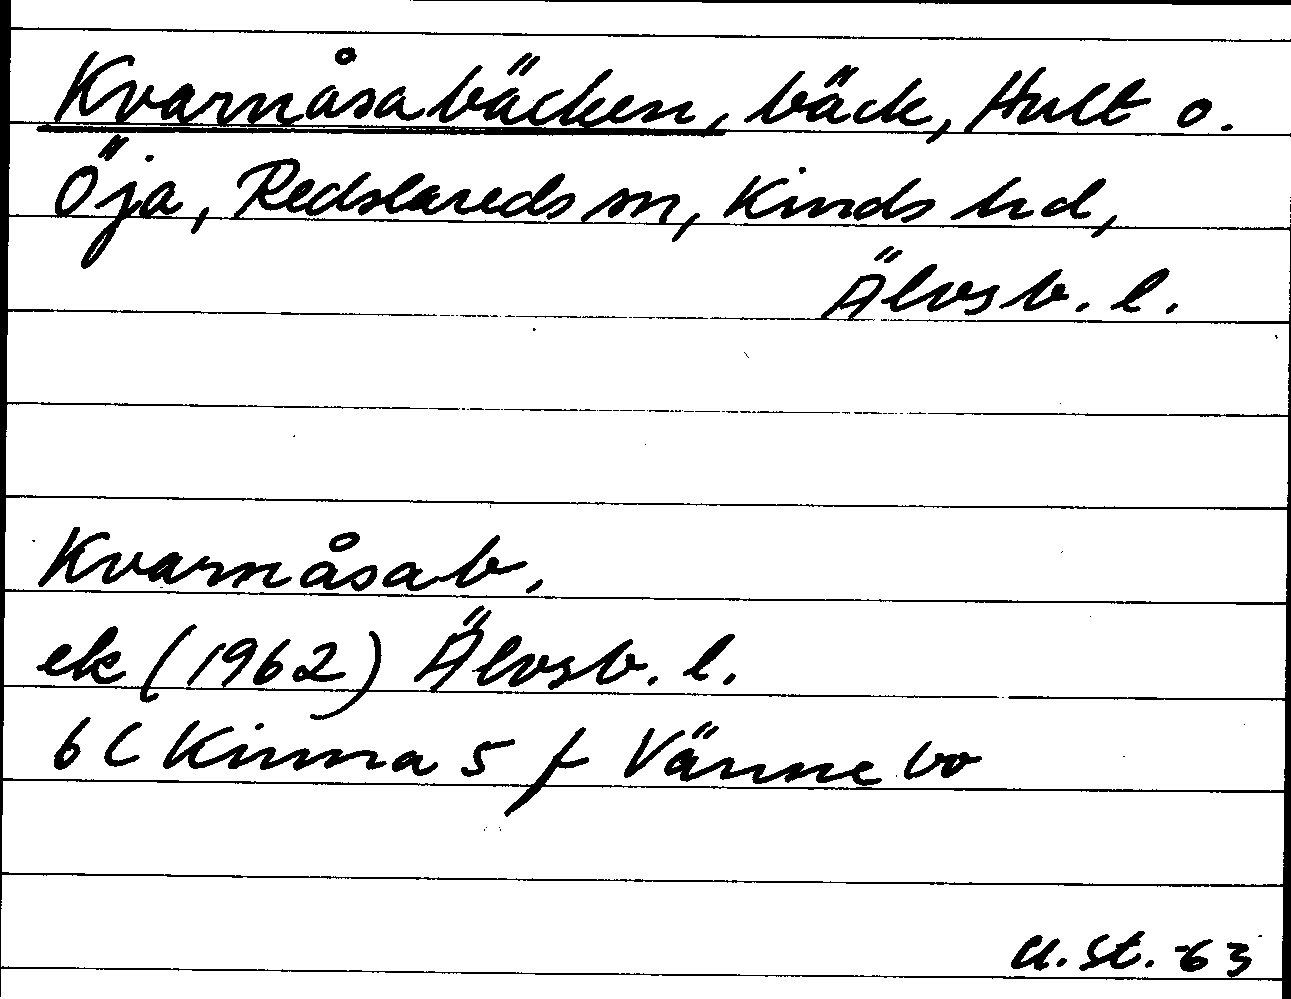 Kvarnåsabäcken, bäck, Hult o.
Öja, Redslareds sn, Kinds hd,
Älvsb. l.
Kvarnåsab.
ek (1962) Älvsb. l.
6 C Kinna 5 f Vännebo
U. St. -63